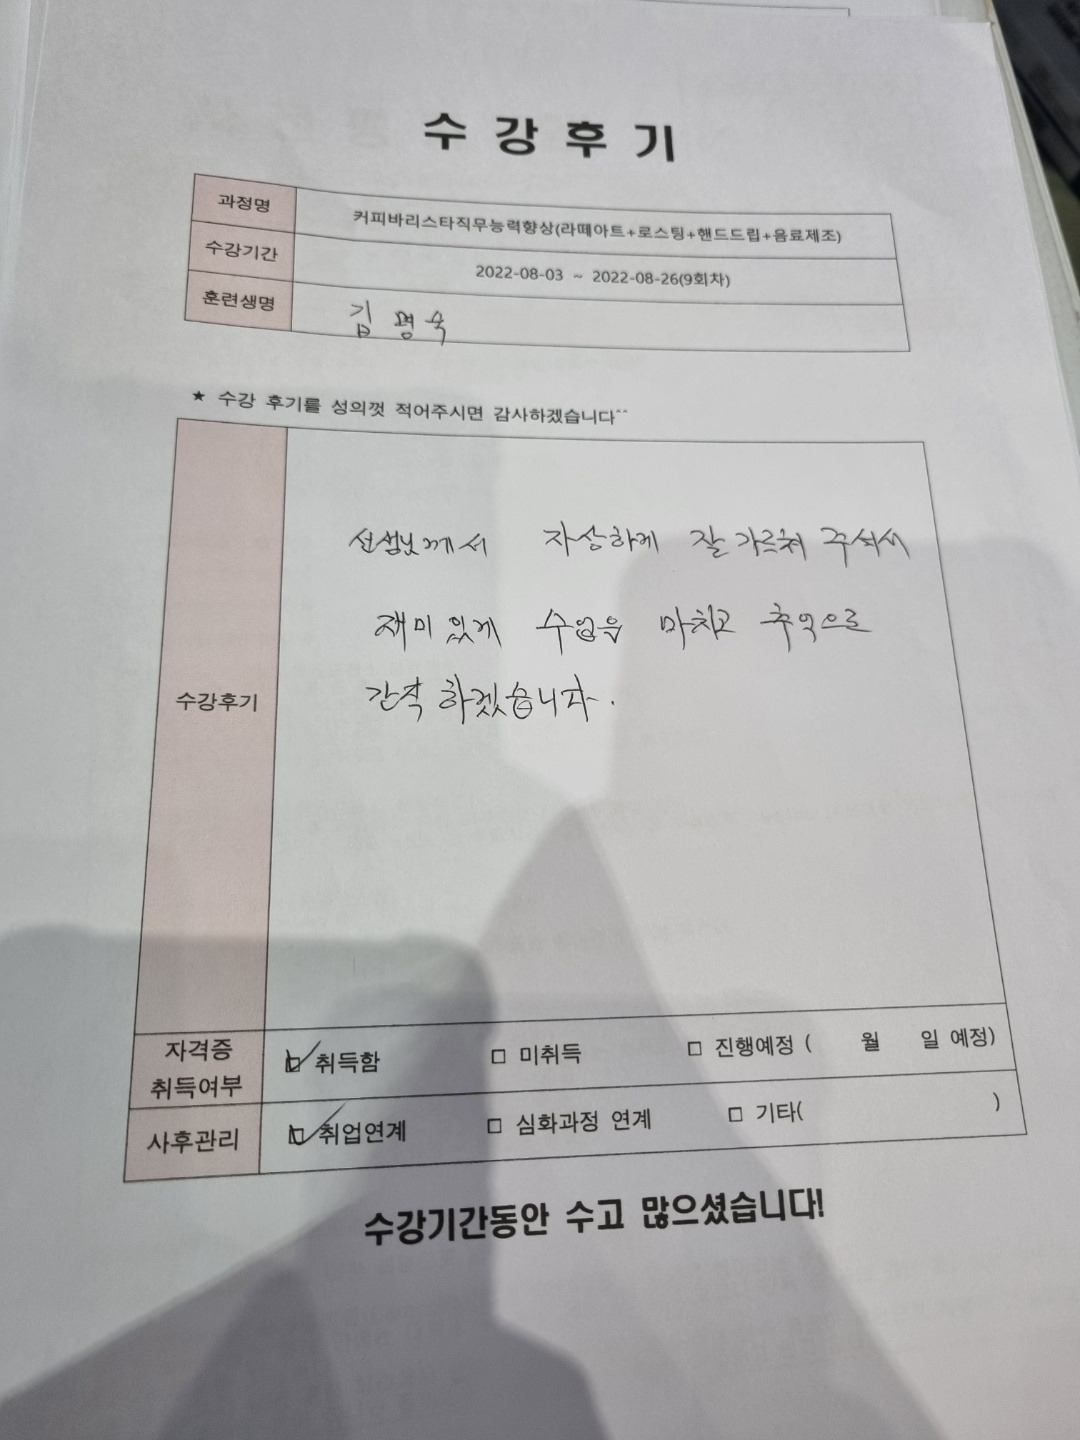 수강후기
과정명 커피바리스타직무능력향상(라떼아트+로스팅+핸드드립+음료제조)
수강기간 2022-08-03 ~ 2022-08-26(9회차)
훈련생명 김명숙
★ 수강 후기를 성의껏 적어주시면 감사하겠습니다^^
수강후기
선생님께서 자상하게 잘 가르쳐 주셔서
재미있게 수업을 마치고 추억으로
간직 하겠습니다.
자격증
취득여부
☑ 취득함 □ 미취득 □ 진행예정 ( 월 일 예정)
사후관리 ☑ 취업연계 □ 심화과정 연계 □ 기타( )
수강기간동안 수고 많으셨습니다!